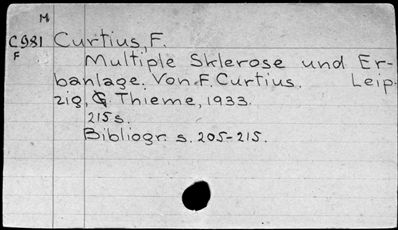 M
C981 Curtius, F.
F
Multiple Sklerose und Er-
banlage. Von F. Curtius. Leip-
zig, G. Thieme, 1933.
215 s.
Bibliogr. s. 205-215.